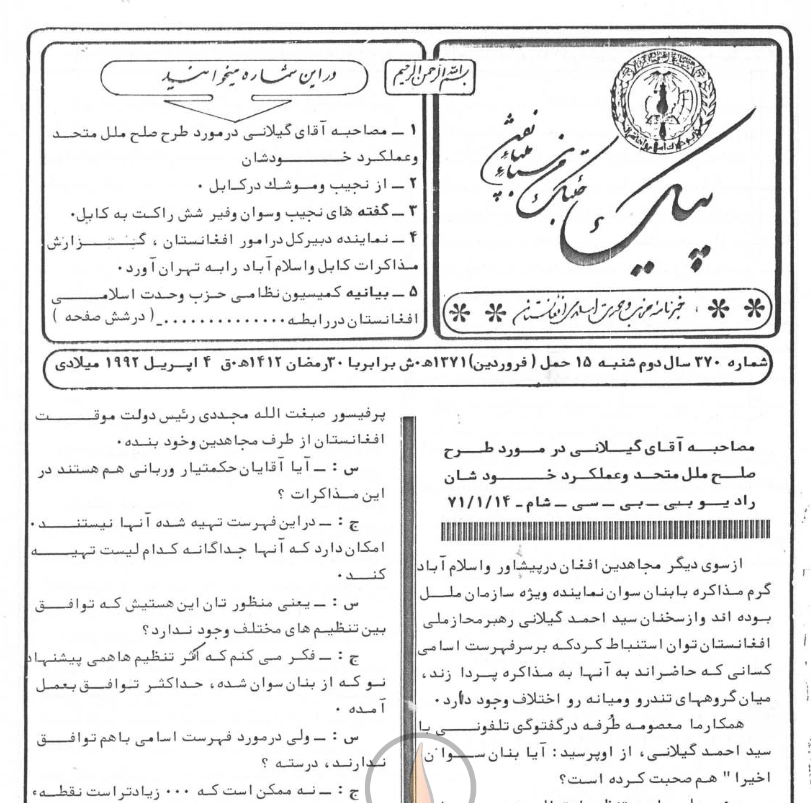 بسم الله الرحمن الرحیم
پیک
خبرنامه حزب وحدت اسلامی افغانستان
در این شماره میخوانید
۱ ــ مصاحبه آقای گیلانی درمورد طرح صلح ملل متحد
وعملکرد خــــودشان
۲ ــ از نجیب ومـوشک درکـابل ۰
۳ ــ گفته های نجیب وسوان وفیر شش راکت به کابل۰
۴ ــ نماینده دبیرکل درامور افغانستان ، گـــزارش
مـذاکرات کابل واسلام آباد رابـه تهـران آورد۰
۵ ــ بیانیه کمیسیون نظامی حزب وحدت اسلامــــی
افغانستان دررابطه۰۰۰۰۰۰۰۰۰۰۰۰۰۰_( درشش صفحه )
شماره ۳۷۰ سال دوم شنبـه ۱۵ حمل ( فروردین)۱۳۷۱ه۰ش برابربا ۳۰رمضان ۱۴۱۲ه۰ق ۴ اپـریـل ۱۹۹۲ میلادی
مصاحبــه آقـای گیـــلانــی در مــورد طـــرح
صلــح ملل متحـد وعملکـرد خـــــود شان
رادیــو بـی ــ بی ــ سی ــ شام ــ ۷۱/۱/۱۴
ازسوی دیگر مجاهدین افغان درپیشاور واسلام آباد
گرم مـذاکره بابنان سوان نماینده ویژه سازمان ملـــل
بـوده اند وازسخنان سید احمـد گیلانی رهبرمحازملی
افغانستان توان استنباط کـردکـه برسرفهرست اسامی
کسانی کـه حاضراند به آنهـا به مـذاکره پــردا زند ،
میان گروههای تندرو ومیانه رو اختلاف وجود دارد۰
همکارما معصومـه طُرفه درگفتوگـی تلفونـــی با
سید احمـد گیلانـی ، از اوپرسید: آیا بنان ســوان
اخیرا " هـم صحبت کـرده است؟
پرفیسور صبغت اللـه مجـددی رئیس دولت موقـــت
افغانستان از طرف مجاهدین وخود بنـده۰
س : ــ آیا آقایان حکمتیار وربانی هـم هستند در
این مـذاکرات ؟
ج : ــ دراین فهرست تهیه شده آنهـا نیستنــد۰
امکان دارد کـه آنهـا جداگانـه کـدام لیست تهیــــه
کننـد ۰
س : ــ یعنی منظور تان این هستیش کـه توافــق
بین تنظیـم های مختلف وجود نـدارد؟
ج : ــ فکـر مـی کنم کـه اکثر تنظیم هاهمی پیشنهـاد
نـو کـه از بنان سوان شده، حـداکثـر تـوافــق بعمـل
آمـده ۰
س : ــ ولی درمورد فهرست اسامی باهم توافـــق
نـدارنـد، درسته ؟
ج : ــ نـه ممکن است کـه ۰۰۰ زیادتراست نقطـه